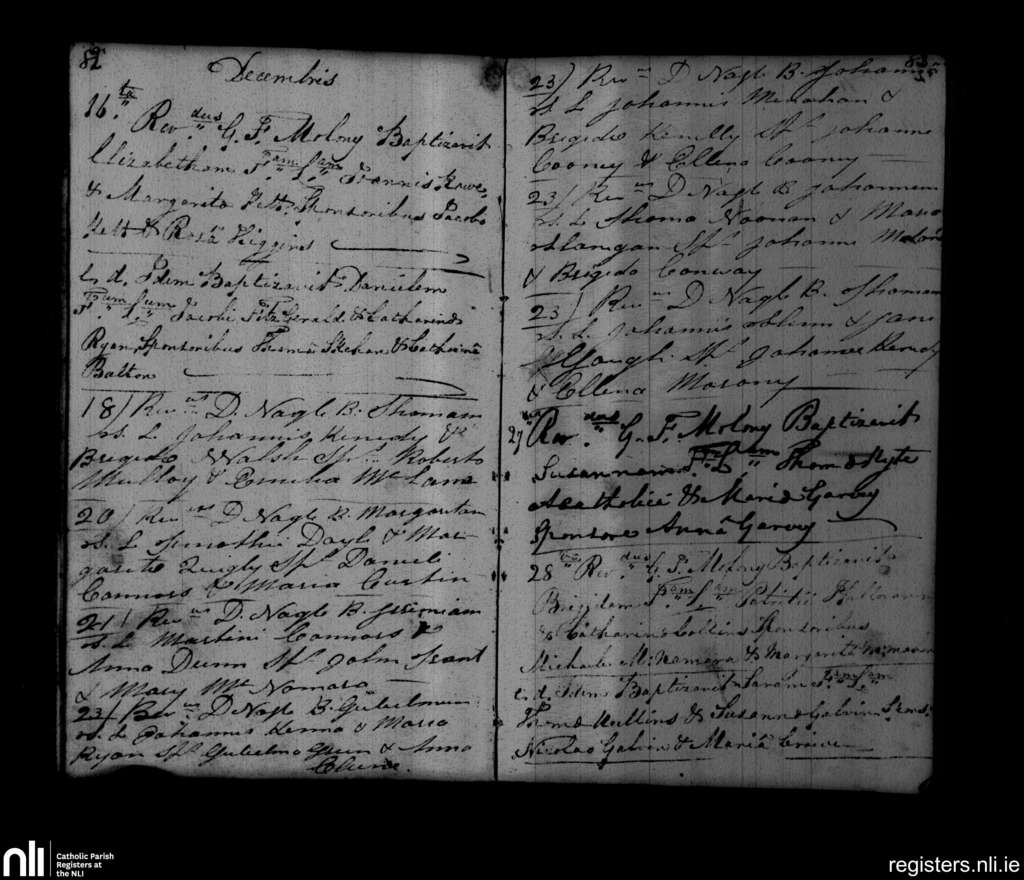 82
Decembris
16.ta Rev.dus G. F. Molony Baptizavit
Elizabetham F.am L.am Joannis
& Margarita Kett. Sponsoribus Jacobo
Kett & Rosâ Higgins
e. d. Idem Baptizavit Danielem
F.um L.um Jacobi FitzGerald & Catharinæ
Ryan Sponsoribus Thoma Mehan & Catharinâ
Balton
18) Revus D. Nagle B. Thomam
Johannis Kenedy &
Brigide Walsh Sp.s Roberto
Mulloy & Emelia McLane
20) Revus D Nagle B. Margaritam
Timothii Doyle & Mar-
garite Quigly Sps Danieli
Connors & Maria Curtin
21) Revus D. Nagle B. Jeremiam
Martini Connors &
Anna Dunn Sps John Grant
& Mary McNamara
23) Revus D Nagle B. Gulielmum
Johannis Kenna & Maria
Ryan Sps Gulielmo Green & Anna
Clune.
83
23) Revus D Nagle B. Johannem
s. L Johannis Minahan &
Brigide Kenelly Sps Johanne
Cooney & Ellena Cooney
23) Revus D Nagle B Johannem
s. L. Thoma Noonan & Maria
Hanigan Sps Johanne
& Brigida Conway
23) Revus D Nagle B. Thomam
s. L. Johannis Glinn & Jane
Gough Sps Johannes Kenedy
& Ellena Marony
27 Rev.dus G. F. Molony Baptizavit
Susannam F. L.am Thomæ Ryte
Acatholici & Mariæ Garvey
Sponsore Annâ Garvey
28 Rev.dus G. F. Molony Baptizavit
Brigidam F.am L.am Patritii Halloran
& Catharinæ Collins Sponsoribus
Michaele McNamara & Margarita McNamara
e. d. Idem Baptizavit Saram F.am L.am
Thomæ Mullins & Susannæ Galvin Spons:
Nicolao Galvin & Mariâ
nli
Catholic Parish
Registers at
the NLI
registers.nli.ie